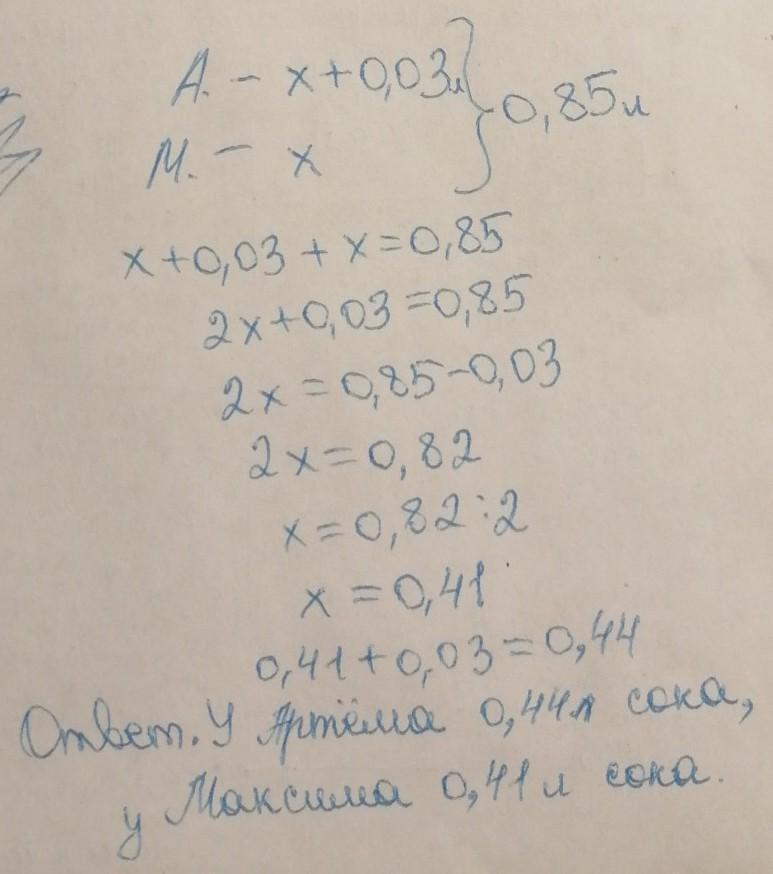 А. - х+0,03л } 0,85л
М. - х
х+0,03+х=0,85
2х+0,03=0,85
2х=0,85-0,03
2х=0,82
х=0,82:2
х=0,41
0,41+0,03=0,44
Ответ. У Артёма 0,44л сока,
у Максима 0,41л сока.